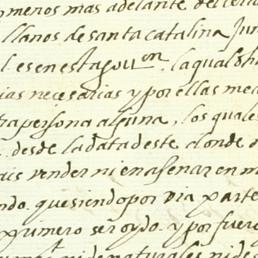 menos mas adelante del
llanos de santa catalina Jun
es en esta gou.on. la qual
ias necesarias y por ellas me
tra persona alguna, los quales
desde la data deste donde
ais vender ni enagenar en m
ndo. que siendo por via parte
primero señ oydo. y por fuero
ni de naturales ni de